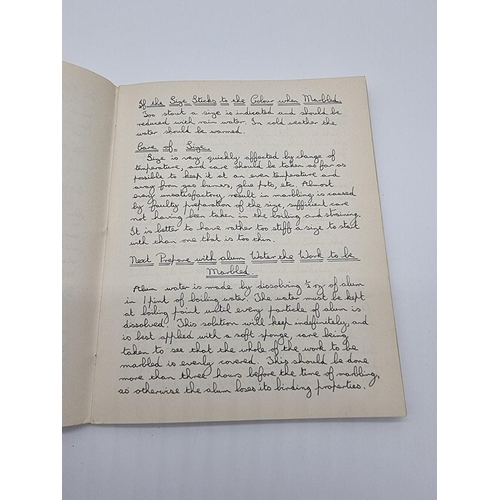 If the Size Sticks to the Colour when Marbled.
Too stout a size is indicated and should be
reduced with rain water. In cold weather the
water should be warmed.
Care of Size.
Size is very quickly affected by change of
temperature, and care should be taken as far as
possible to keep it at an even temperature and
away from gas burners, glue pots, etc. Almost
every unsatisfactory result in marbling is caused
by faulty preparation of the size, sufficient care
not having been taken in the boiling and straining.
It is better to have rather too stiff a size to start
with than one that is too thin.
Next Prepare with alum Water the Work to be
Marbled.
Alum water is made by dissolving ½ oz of alum
in 1 pint of boiling water. The water must be kept
at boiling point until every particle of alum is
dissolved. This solution will keep indefinitely, and
is best applied with a soft sponge, care being
taken to see that the whole of the work to be
marbled is evenly covered. This should be done
more than three hours before the time of marbling,
as otherwise the alum loses its binding properties.